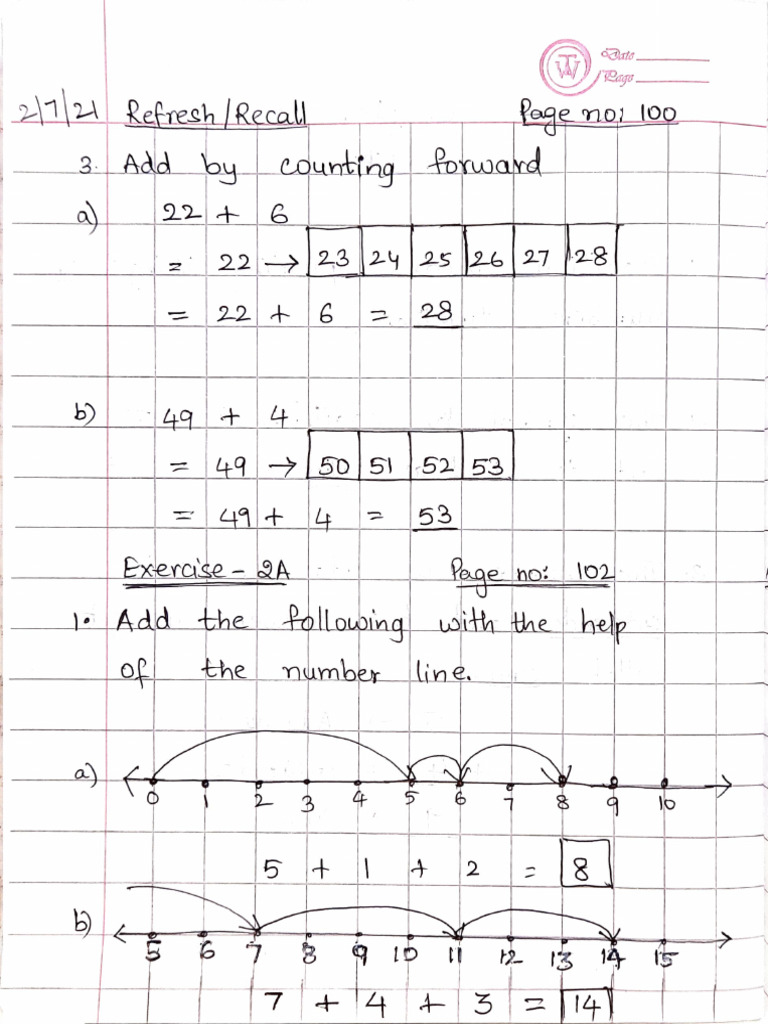 Date
Page
2/7/21 Refresh/Recall Page no: 100
3. Add by counting forward
a) 22 + 6
= 22 → 23 24 25 26 27 28
= 22 + 6 = 28
b) 49 + 4
= 49 → 50 51 52 53
= 49 + 4 = 53
Exercise - 2A Page no: 102
1. Add the following with the help
of the number line.
a) 0 1 2 3 4 5 6 7 8 9 10
5 + 1 + 2 = 8
b) 5 6 7 8 9 10 11 12 13 14 15
7 + 4 + 3 = 14